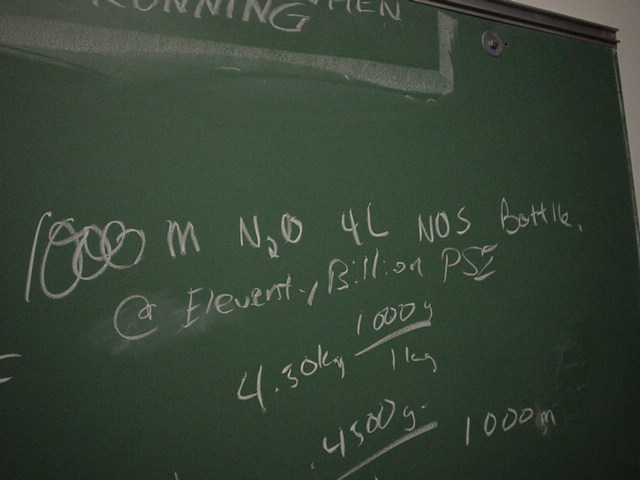 RUNNING WHEN
1000 m N2O 4L NOS Bottle,
@ Eleventy Billion PSI
4.50kg 1000g
1kg
4500g. 1000m